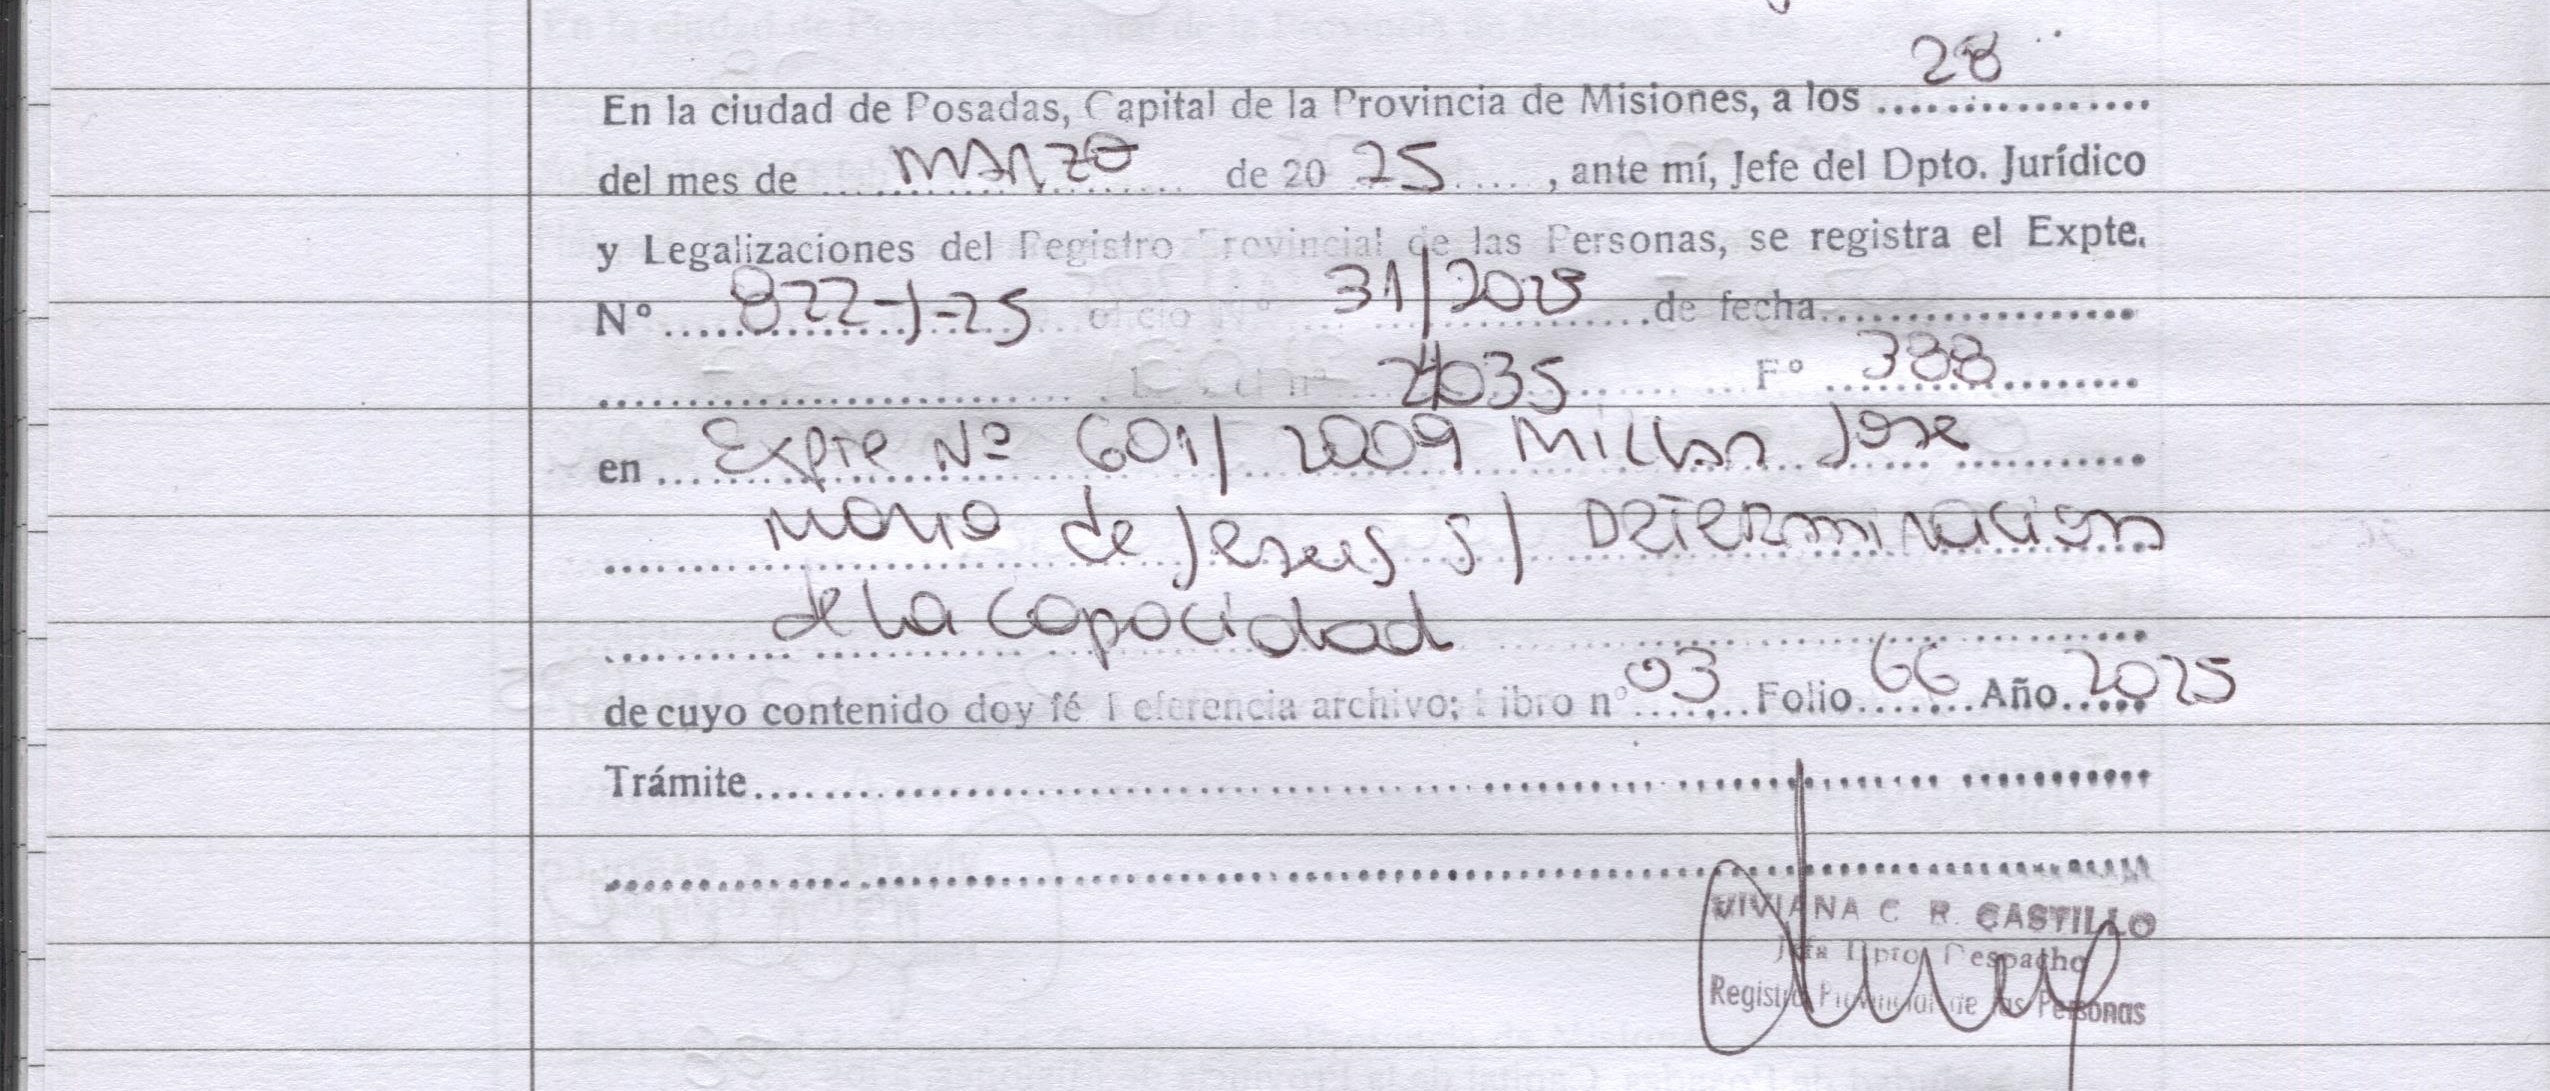 En la ciudad de Posadas, Capital de la Provincia de Misiones, a los 28
del mes de MARZO de 20 25, ante mí, Jefe del Dpto. Jurídico
y Legalizaciones del Registro Provincial de las Personas, se registra el Expte.
Nº 822-J-25 oficio Nº 31/2025 de fecha
4035 Fº 388
en Expte Nº 601/2009 Millan Jose
Mario de Jesus s/ Determinacion
de la capacidad
de cuyo contenido doy fé Referencia archivo; Libro nº 03 Folio 66 Año 2025
Trámite
VIVIANA C. R. CASTILLO
Jefa Dpto. Despacho
Registro Provincial de las Personas